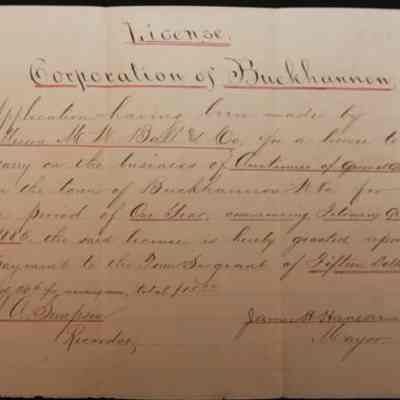 License.
Corporation of Buckhannon
Application having been made by
M. W. Ball & Co, for a license to
carry on the business of
in the town of Buckhannon W. Va for
period of One Year, commencing
the said license is hereby granted upon
payment to the Town Sergeant of Fifteen
total $15.00
A. Simpson
Recorder,
James H. Hanson
Mayor